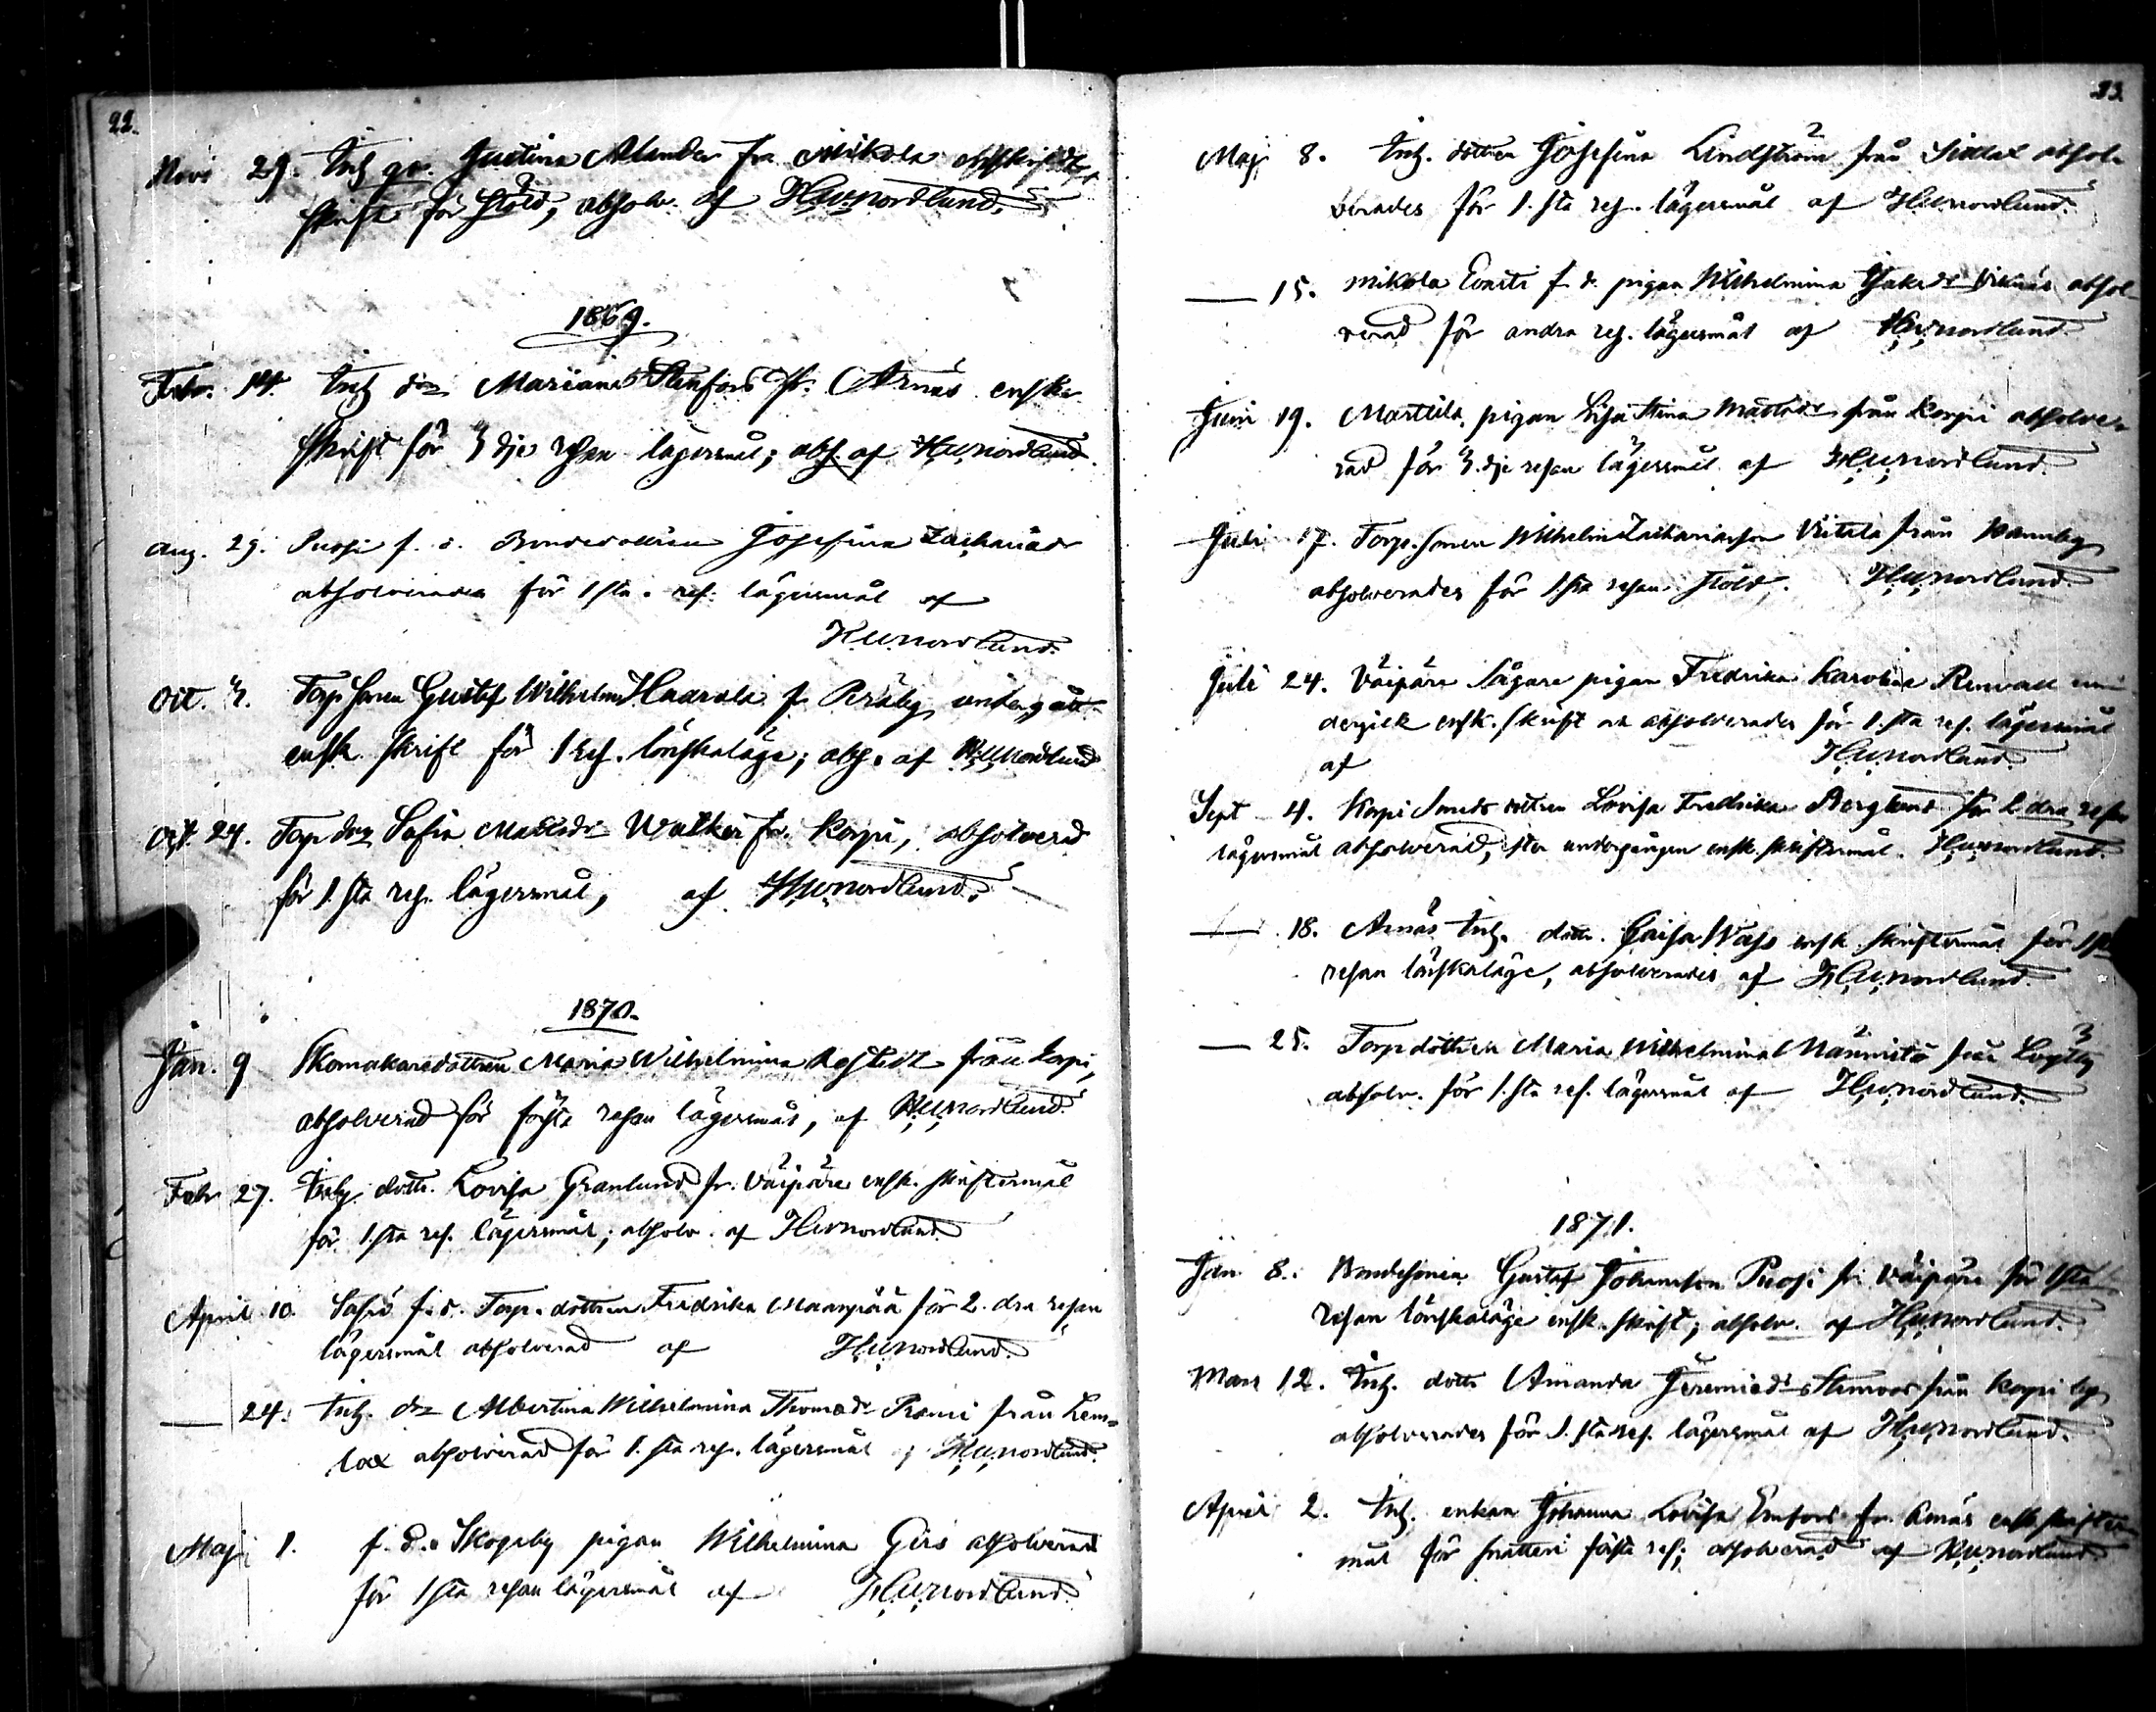 22.
Nov. 29. Inh. qv. Justina Alander fr. Mikola
skrift för stöld, absolv. af H.W. Nordlund.
1869.
Febr. 14. Inh. dr Mariana Stenfors fr. Arnäs ensk.
skrift för 3dje resan lägersmål; abs. af H.W. Nordlund.
Aug. 29. Puosi f. d. Bondedottren Josefina Zachariædr
absolverades för 1sta res. lägersmål af
H.W. Nordlund.
Oct. 3. Torp. sonen Gustaf Wilhelm Haarala f. undergått
ensk. skrift för 1 res. lönskaläge; abs. af H.W. Nordlund
Oct. 24. Torp dr Sofia Mattsdr Walker fr. Korpi, absolverad
för 1.sta res. lägersmål, af H.W. Nordlund.
1870.
Jan. 9 Skomakaredottren Maria Wilhelmina från Korpi,
absolverad för första resan lägersmål, af H.W. Nordlund.
Febr 27. Inh. dottr. Lovisa Granlund fr. Väipäre ensk. skriftermål
för 1.sta res. lägersmål; absolv. af H.W. Nordlund
April 10. f. d. Torp. dottren Fredrika Maanpää för 2.dra resan
lägersmål absolverad af H.W. Nordlund.
— 24. Inh. dr Albertina Wilhelmina Thomædr från Lem-
lax absolverad för 1.sta res. lägersmål af H.W. Nordlund.
Maj 1. f. d. Skogsby pigan Wilhelmina Girs absolverad
för 1sta resan lägersmål af H.W. Nordlund.
23.
Maj 8. Inh. dottren Josefina Lindström från absol-
verades för 1.sta res. lägersmål af H.W. Nordlund.
— 15. Mikola Eonsti f. d. pigan Wilhelmina absol-
verad för andra res. lägersmål af H.W. Nordlund.
Juni 19. Marttila, pigan Lisa Stina Mattsdr från Korpi absolve-
rad för 3.dje resan lägersmål af H.W. Nordlund.
Juli 17. Torp. sonen Wilhelm Zachariasson Viitala från
absolverades för 1.sta resan stöld. H.W. Nordlund.
Juli 24. Väipäre Sågare pigan Fredrika Karolina Renvall un-
dergick ensk. skrift och absolverades för 1.sta res. lägersmål
af H.W. Nordlund.
Sept 4. Korpi Smeds dottren Lovisa Fredrika Berglund för 2.dra resan
lägersmål absolverad, efter undergången ensk. skriftermål. H.W. Nordlund.
— 18. Arnäs Inh. dottr. Gaisa Wass ensk. skriftermål för 1sta
resan lönskaläge, absolverades af H.W. Nordlund.
— 25. Torpdottren Maria Wilhelmina Männistö från
absolv. för 1.sta res. lägersmål af H.W. Nordlund.
1871.
Jan 8. Bondesonen Gustaf Johansson Puosi fr. Väipäre för 1sta
resan lönskaläge ensk. skrift; absolv. af H.W. Nordlund.
Mars 12. Inh. dottr Amanda Jeremiædr från Korpi by
absolverades för 1.sta res. lägersmål af H.W. Nordlund.
April 2. Inh. enkan Johanna Lovisa Enfors fr. Arnäs ensk. skrifter-
mål för snatteri första res; absolverad af H.W. Nordlund.